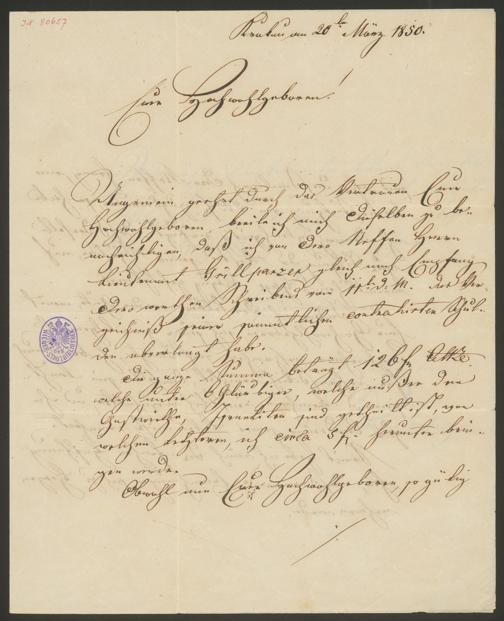 I.N. 80657
Krakau am 20t März 1850.
Euer Hochwohlgeboren!
Ungemein geehrt durch das Vertrauen Euer
Hochwohlgeboren beeile ich mich Dieselben zu be-
nachrichtigen, daß ich von dero Neffen Herrn
Lieutenant Grillparzer gleich nach Empfang
dero werthen Schreibens vom 11t. d. M. das Ver-
zeichniß seiner sämmtlichen contrahirten Schul-
den abverlangt habe.
Die ganze Summe beträgt 126 f
welche unter 6 Gläubiger, welche außer dem
Gastwirthe, Israeliten sind getheilt ist, von
welchen letzteren, ich circa 5 f. herunter brin-
gen werde.
Obwohl nun Euer Hochwohlgeboren, so gütig
./.